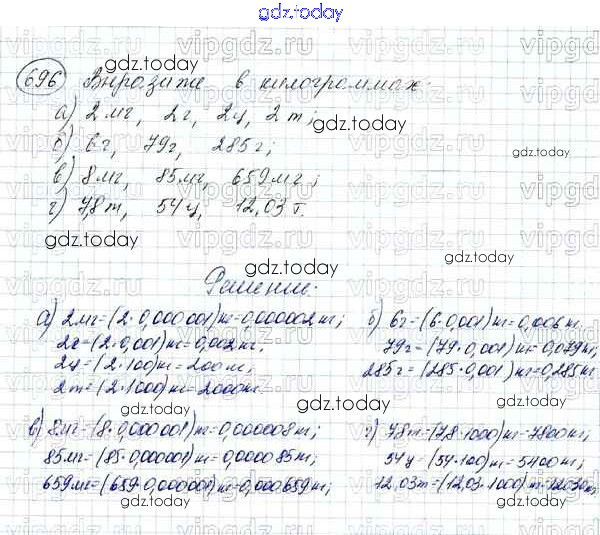 gdz.today
696 Выразите в килограммах:
а) 2 мг, 2г, 2ц, 2 т;
б) 6г, 79г, 285г;
в) 8мг, 85мг, 659мг;
г) 7,8т, 54ц, 12,03т.
Решение.
а) 2мг=(2·0,000001)кг=0,000002кг;
2г=(2·0,001)кг=0,002кг;
2ц=(2·100)кг=200кг;
2т=(2·1000)кг=2000кг.
б) 6г=(6·0,001)кг=0,006кг
79г=(79·0,001)кг=0,079кг;
285г=(285·0,001)кг=0,285кг
в) 8мг=(8·0,000001)кг=0,000008кг;
85мг=(85·0,000001)кг=0,000085кг;
659мг=(659·0,000001)кг=0,000659кг;
г) 7,8т=(7,8·1000)кг=7800кг;
54ц=(54·100)кг=5400кг;
12,03т=(12,03·1000)кг=12030кг.
gdz.today
vipgdz.ru